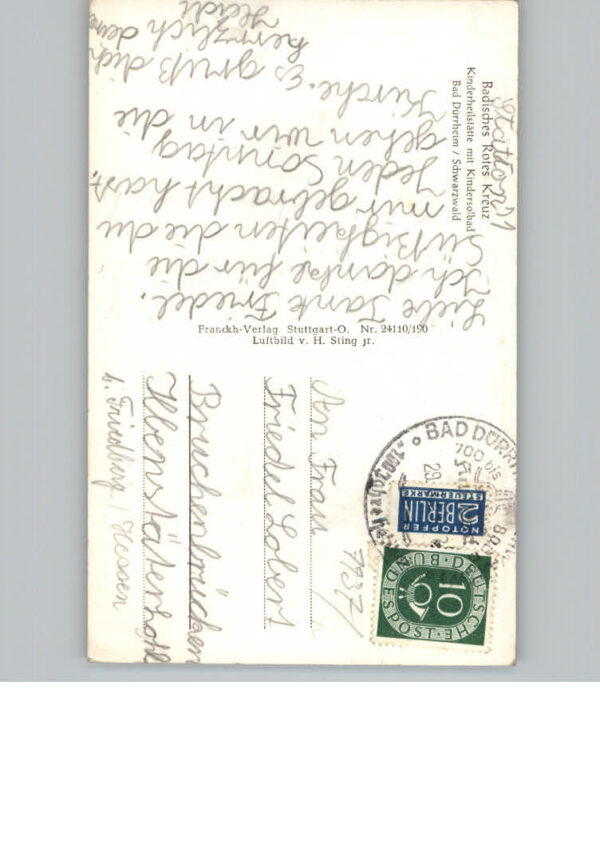 Badisches Rotes Kreuz
Kinderheilstätte mit Kindersolbad
Bad Dürrheim / Schwarzwald
Liebe Tante Friedel.
Ich danke für die
Süßigkeiten die du
mir gebracht hast,
Jeden Sonntag
gehen wir in die
Kirche. Es grüß dich
herrzlich deine
Heidi
Franckh-Verlag Stuttgart-O. Nr. 24110/190
Luftbild v. H. Sting jr.
BAD DÜRRH
700 bis
29.
NOTOPFER
2 BERLIN
STEUERMARKE
10
DEUTSCHE
BUNDESPOST
An Frau
Friedel Lobert
Bruchenbrücken
b. Friedberg / Hessen